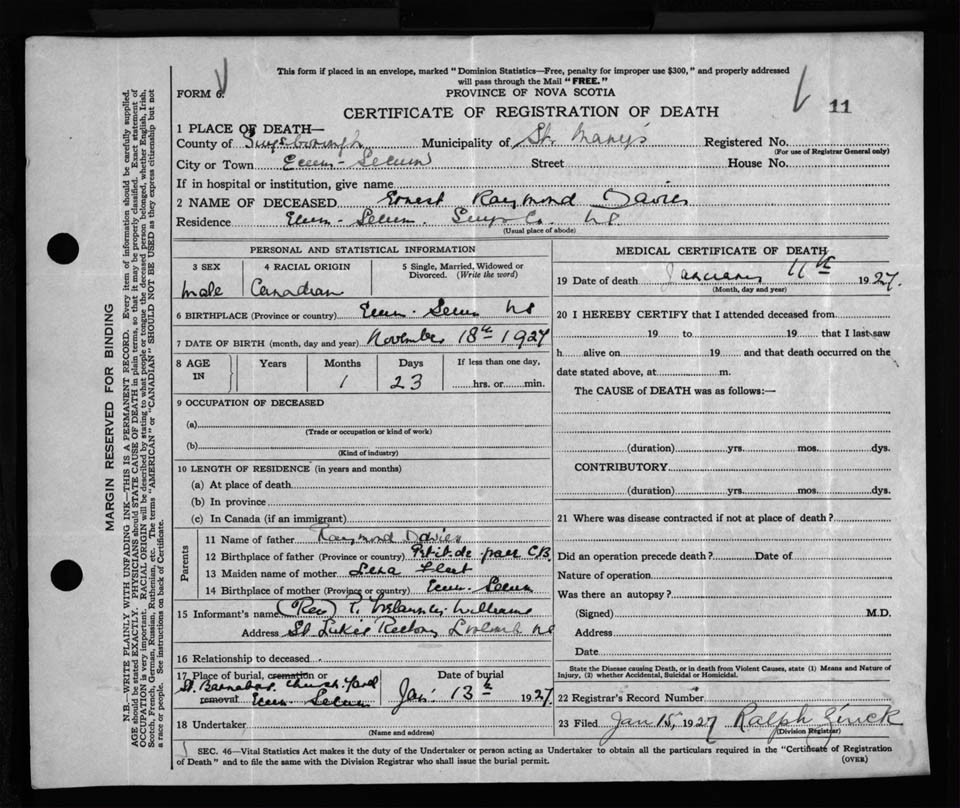 This form if placed in an envelope, marked "Dominion Statistics—Free, penalty for improper use $300," and properly addressed
will pass through the Mail "FREE."
FORM 6.
PROVINCE OF NOVA SCOTIA
CERTIFICATE OF REGISTRATION OF DEATH
11
1 PLACE OF DEATH—
County of Municipality of St. Mary's Registered No.
(For use of Registrar General only)
City or Town Ecum-Secum Street House No.
If in hospital or institution, give name
2 NAME OF DECEASED Ernest Raymond Davies
Residence Ecum-Secum. Guys Co. NS
(Usual place of abode)
PERSONAL AND STATISTICAL INFORMATION
3 SEX 4 RACIAL ORIGIN 5 Single, Married, Widowed or
Divorced. (Write the word)
male Canadian
6 BIRTHPLACE (Province or country) Ecum-Secum NS
7 DATE OF BIRTH (month, day and year) November 18th 1927
8 AGE IN Years Months Days If less than one day,
1 23 hrs. or min.
9 OCCUPATION OF DECEASED
(a)
(Trade or occupation or kind of work)
(b)
(Kind of industry)
10 LENGTH OF RESIDENCE (in years and months)
(a) At place of death
(b) In province
(c) In Canada (if an immigrant)
Parents
11 Name of father Raymond Davies
12 Birthplace of father (Province or country) C.B.
13 Maiden name of mother Lena
14 Birthplace of mother (Province or country) Ecum-Secum
15 Informant's name (Rev) T. Williams
Address St Luke's Rectory NS
16 Relationship to deceased
17 Place of burial, cremation or
removal
St. Barnabas Church Yard
Ecum Secum
Date of burial
Jan 13th 1927
18 Undertaker
(Name and address)
MEDICAL CERTIFICATE OF DEATH
19 Date of death January 11th 1927
(Month, day and year)
20 I HEREBY CERTIFY that I attended deceased from
19 to 19 that I last saw
h alive on 19 and that death occurred on the
date stated above, at m.
The CAUSE of DEATH was as follows:—
(duration) yrs. mos. dys.
CONTRIBUTORY
(duration) yrs. mos. dys.
21 Where was disease contracted if not at place of death?
Did an operation precede death? Date of
Nature of operation
Was there an autopsy?
(Signed) M.D.
Address
Date
State the Disease causing Death, or in death from Violent Causes, state (1) Means and Nature of
Injury, (2) whether Accidental, Suicidal or Homicidal.
22 Registrar's Record Number
23 Filed Jan 15, 1927 Ralph
(Division Registrar)
SEC. 46—Vital Statistics Act makes it the duty of the Undertaker or person acting as Undertaker to obtain all the particulars required in the "Certificate of Registration
of Death" and to file the same with the Division Registrar who shall issue the burial permit.
(OVER)
MARGIN RESERVED FOR BINDING
N.B.—WRITE PLAINLY WITH UNFADING INK—THIS IS A PERMANENT RECORD. Every item of information should be carefully supplied.
AGE should be stated EXACTLY. PHYSICIANS should STATE CAUSE OF DEATH in plain terms, so that it may be properly classified. Exact statement of
OCCUPATION is very important. RACIAL ORIGIN will be described by stating to what people or tongue the deceased person belonged, whether English, Irish,
Scotch, French, German, Russian, Ruthenian, etc. The terms "AMERICAN" or "CANADIAN" SHOULD NOT BE USED as they express citizenship but not
a race or people. See instructions on back of Certificate.